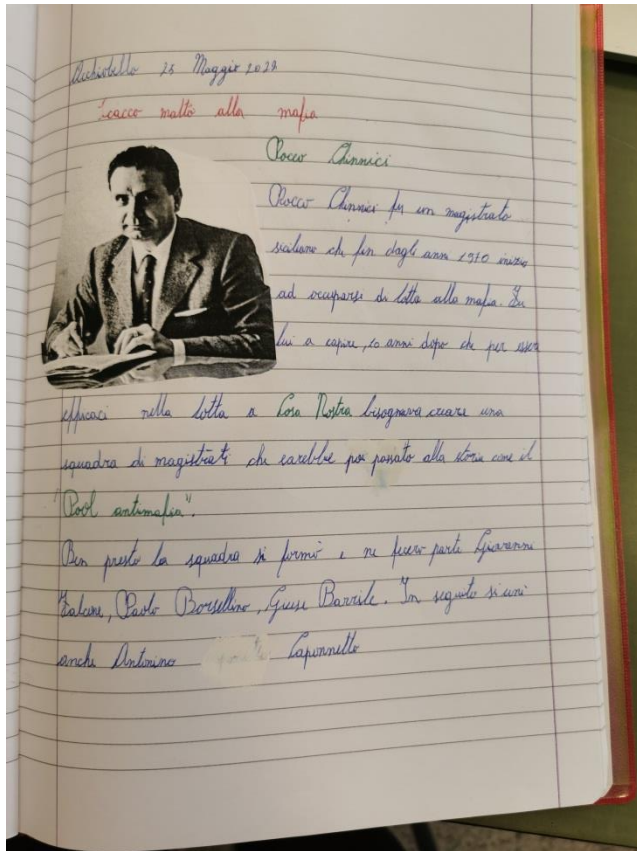 Occhiobello 25 Maggio 2022
Scacco matto alla mafia
Rocco Chinnici
Rocco Chinnici fu un magistrato
siciliano che fin dagli anni 1970 iniziò
ad occuparsi di lotta alla mafia. Fu
lui a capire, 10 anni dopo che per esser
efficaci nella lotta a Cosa Nostra bisognava creare una
squadra di magistrati che sarebbe poi passato alla storia come il
"Pool antimafia".
Ben presto la squadra si formò e ne fecero parte Giovanni
Falcone, Paolo Borsellino, Giuse Barrile. In seguito si unì
anche Antonino Caponnetto